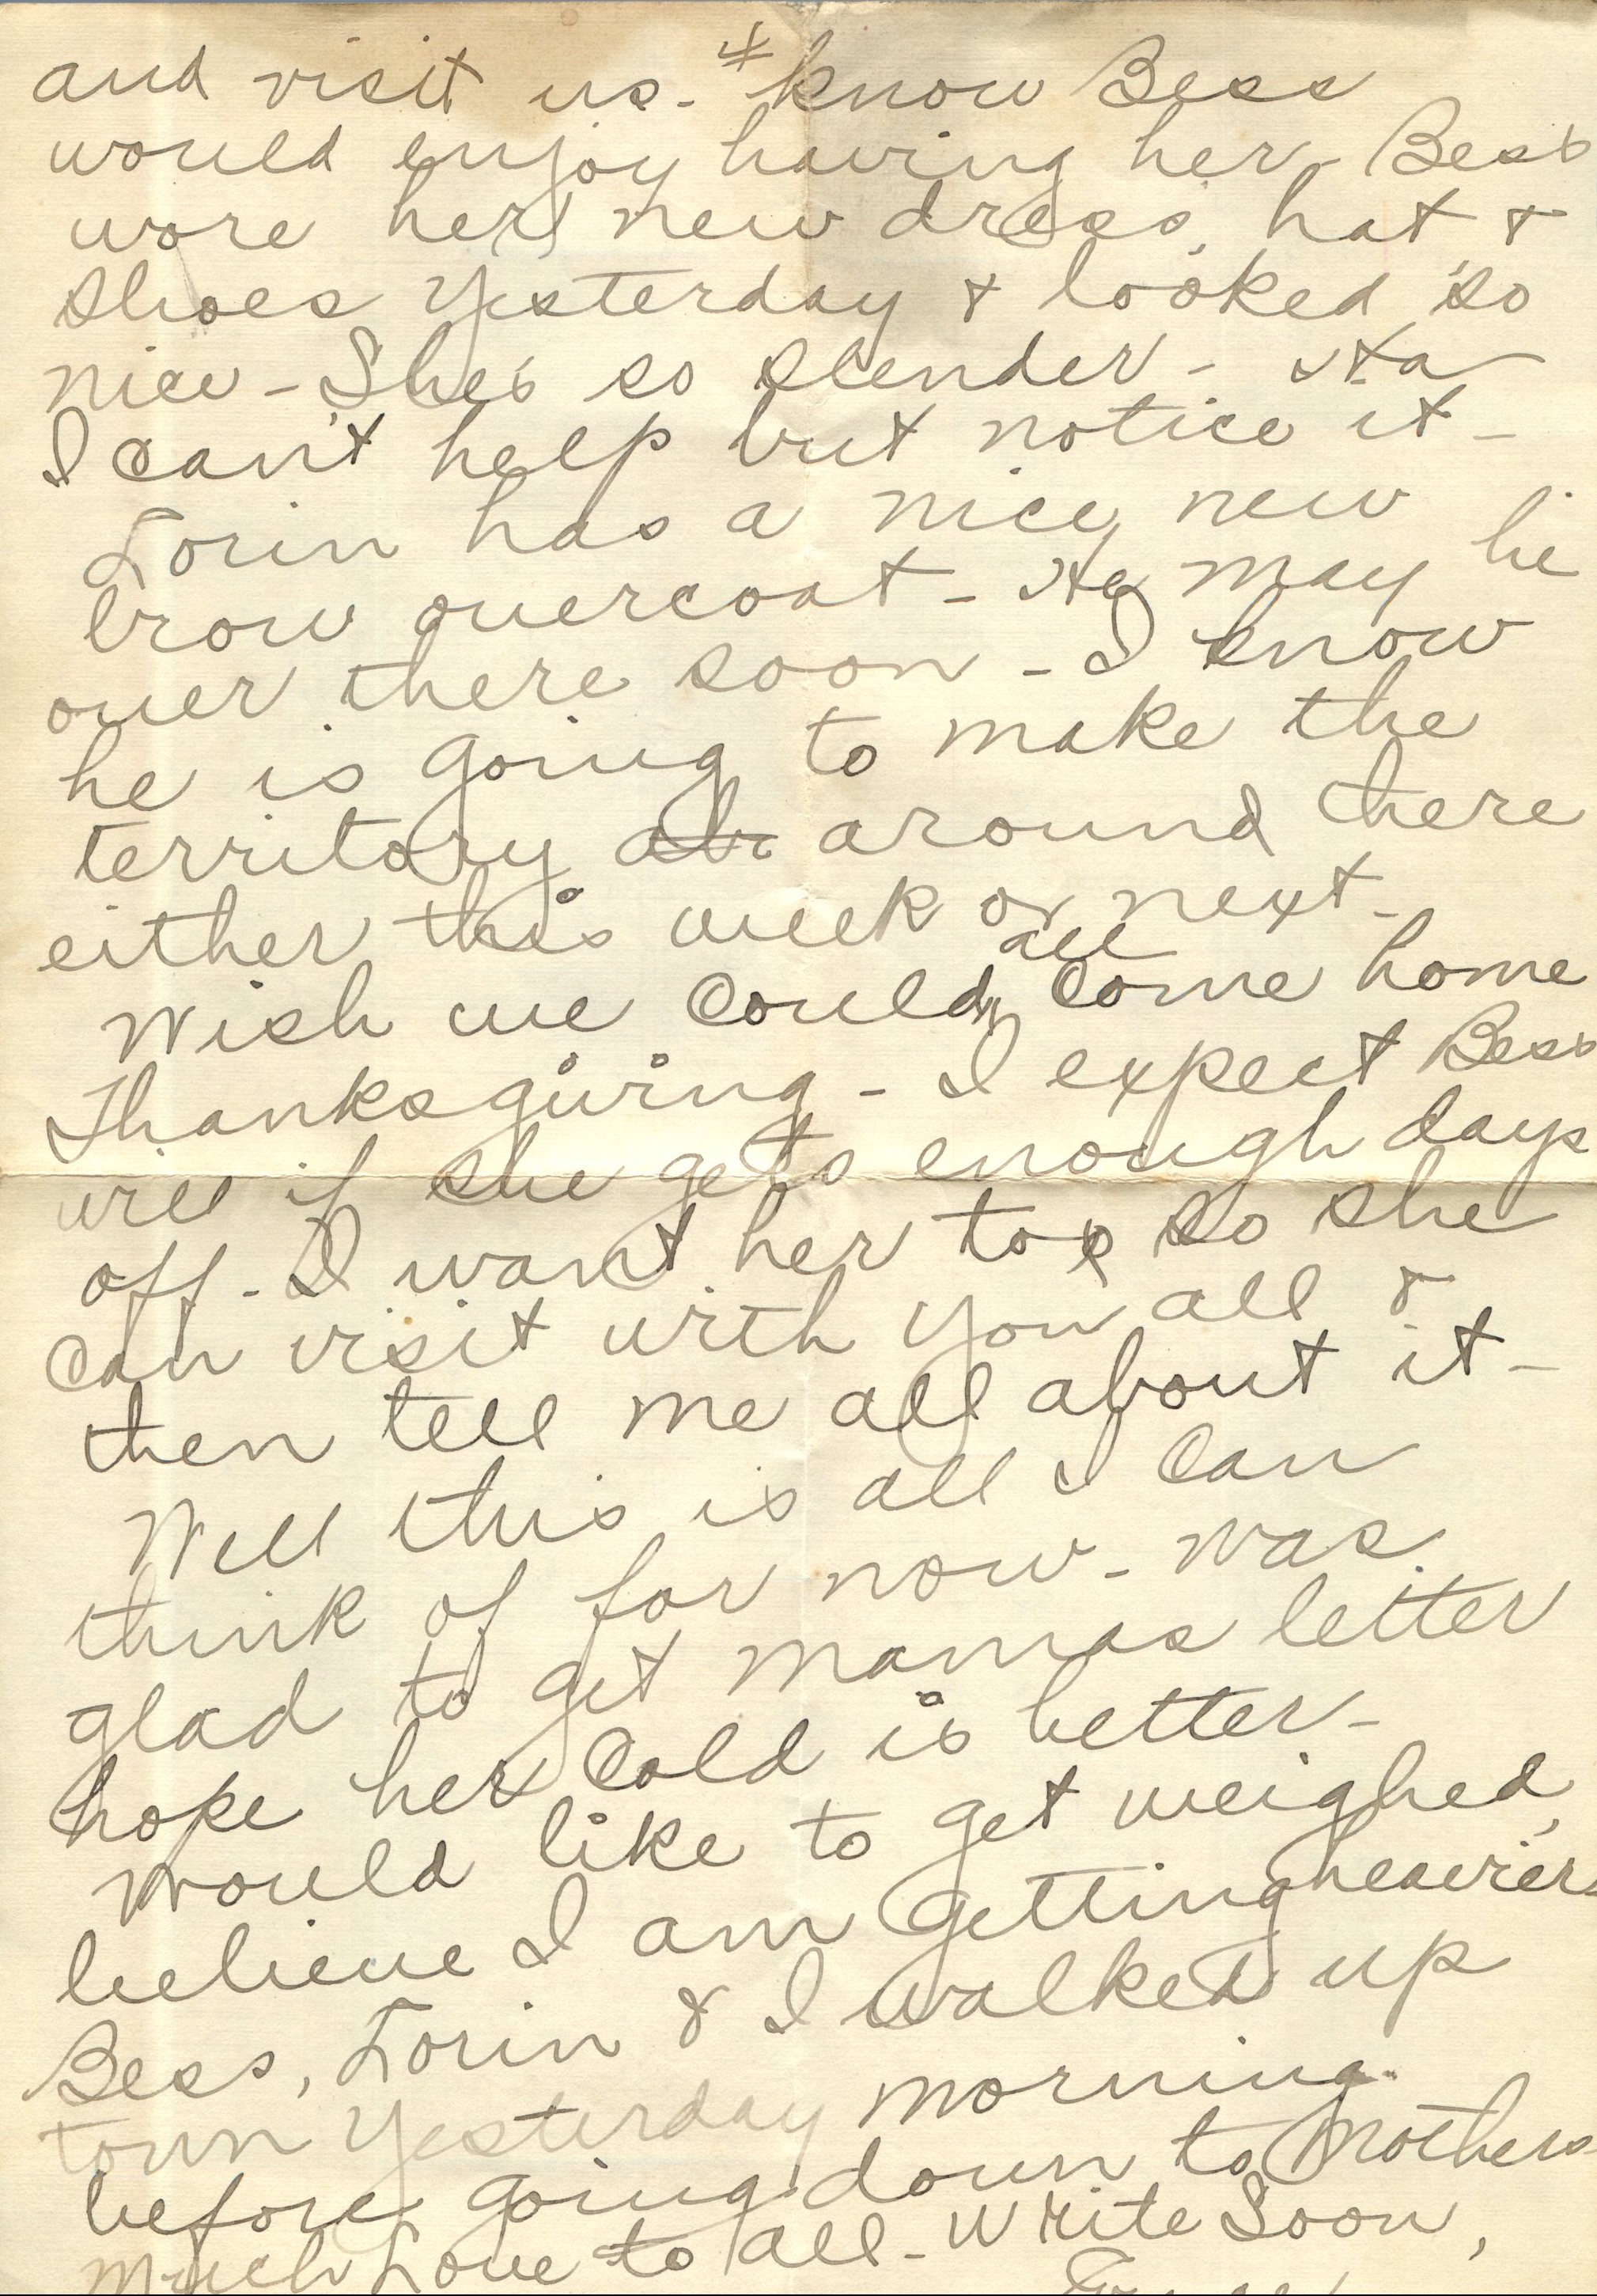 and visit us. know Bess
would enjoy having her - Bess
wore her new dress, hat &
shoes yesterday & looked so
nice - She's so slender - Ha
I can't help but notice it -
Lorin has a nice new
brow overcoat - He may be
over there soon - I know
he is going to make the
territory around there
either this week or next -
Wish we could all come home
Thanksgiving - I expect Bess
will if she gets enough days
off - I want her to so she
can visit with you all &
then tell me all about it -
Well this is all I can
think of for now - Was
glad to get Mamas letter
hope her cold is better -
Would like to get weighed,
believe I am getting heavier
Bess, Lorin & I walked up
town yesterday morning
before going down to Mothers
Much Love to all - Write Soon,